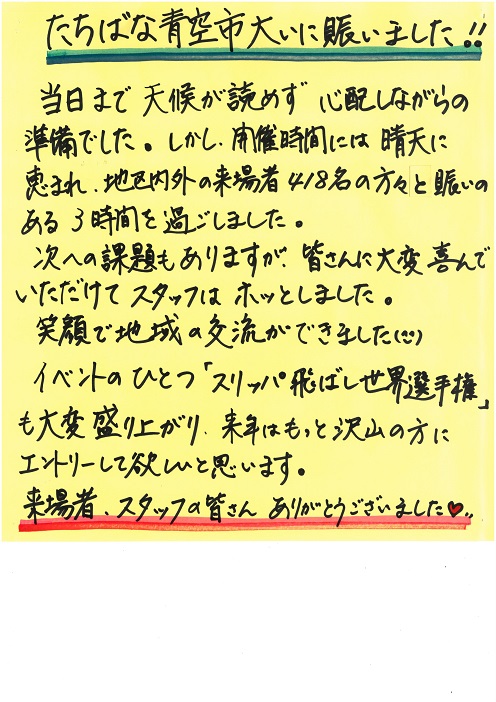 たちばな青空市大いに賑いました!!
当日まで 天候が読めず 心配しながらの
準備でした。しかし、開催時間には 晴天に
恵まれ、地区内外の来場者418名の方々と賑いの
ある 3時間を過ごしました。
次への課題もありますが、皆さんに大変喜んで
いただけて スタッフは ホッとしました。
笑顔で地域の交流ができました(^^)
イベントのひとつ「スリッパ飛ばし世界選手権」
も大変盛り上がり、来年はもっと沢山の方に
エントリーして欲しいと思います。
来場者、スタッフの皆さん ありがとうございました♥..